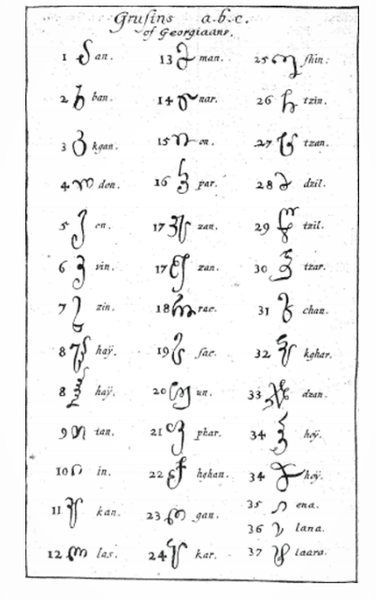 Grusins a.b.c.
of Georgiaanr.
1 ა an.
2 ბ ban.
3 გ kgan.
4 დ don.
5 ე en.
6 ვ vin.
7 ზ zin.
8 haÿ.
8 haÿ.
9 თ tan.
10 ი in.
11 კ kan.
12 ლ las.
13 მ man.
14 ნ nar.
15 ო on.
16 პ par.
17 zan.
17 zan.
18 რ rae.
19 ს sae.
20 უ un.
21 ფ phar.
22 ქ hehan.
23 ღ gan.
24 ყ kar.
25 შ shin:
26 ჩ tzin.
27 ც tzan.
28 ძ dzil.
29 წ tzil.
30 ჭ tzar.
31 ხ chan.
32 ჴ kghar.
33 ჯ dzan.
34 hoÿ.
34 hoÿ.
35 ena.
36 lana.
37 taara.